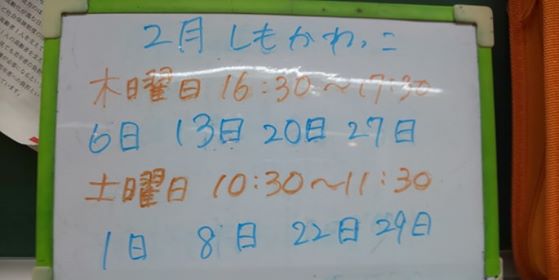 2月 しもかわっこ
木曜日 16:30～17:30
6日 13日 20日 27日
土曜日 10:30～11:30
1日 8日 22日 29日